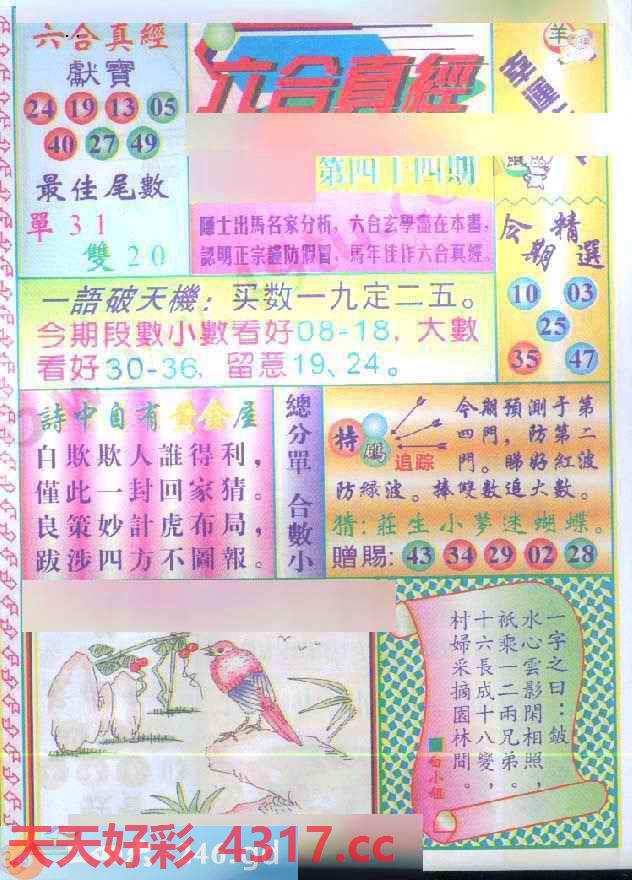 六合真經
獻寶
24 19 13 05
40 27 49
最佳尾數
單 31
雙 20
六合真經
第四十四期
隱士出馬名家分析，六合玄學盡在本書，
認明正宗謹防假冒，馬年佳作六合真經。
羊
今期精選
10 03
25
35 47
一語破天機：买数一九定二五。
今期段數小數看好08-18，大數
看好30-36，留意19、24。
詩中自有黃金屋
自欺欺人誰得利，
僅此一封回家猜。
良策妙計虎布局，
跋涉四方不圖報。
總分單 合數小
特碼
追踪
今期預測于第
四門，防第二
門。睇好紅波
防綠波。捧雙數追大數。
猜：莊生小夢迷蝴蝶。
贈賜：43 34 29 02 28
一字之曰：鈸
水心雲影閑相照，
祇乘一二兩兄弟。
十六長成十八變，
村婦采摘園林間。
白小姐
天天好彩 4317.cc
46.gd